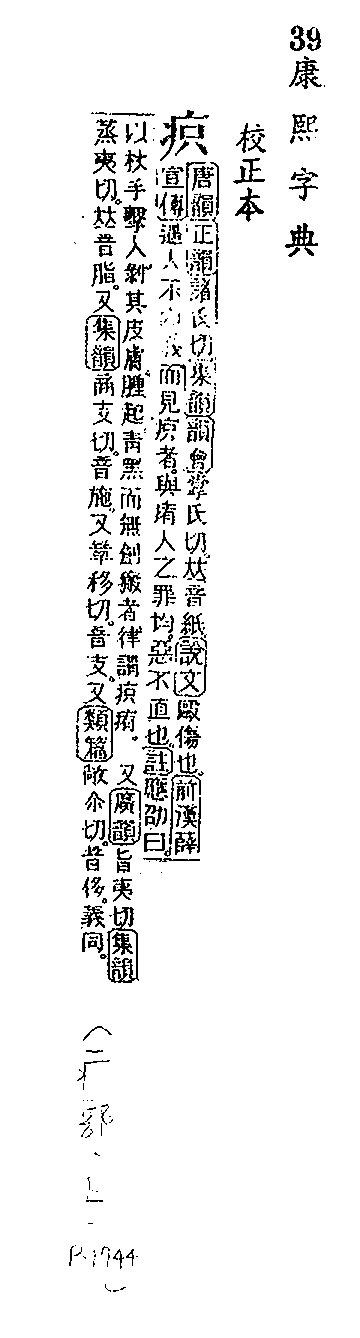 39康熙字典
校正本
疻
唐韻正韻諸氏切集韻韻會掌氏切𠀤音紙說文毆傷也前漢薛
宣傳遇人不以義而見疻者與痏人之罪均惡不直也註應劭曰
以杖手擊人剝其皮膚腫起靑黑而無創瘢者律謂疻痏。又廣韻旨夷切集韻
蒸夷切𠀤音脂。又集韻商支切。音施。又章移切。音支。又類篇敞尒切。音侈。義同。
部
P.1744